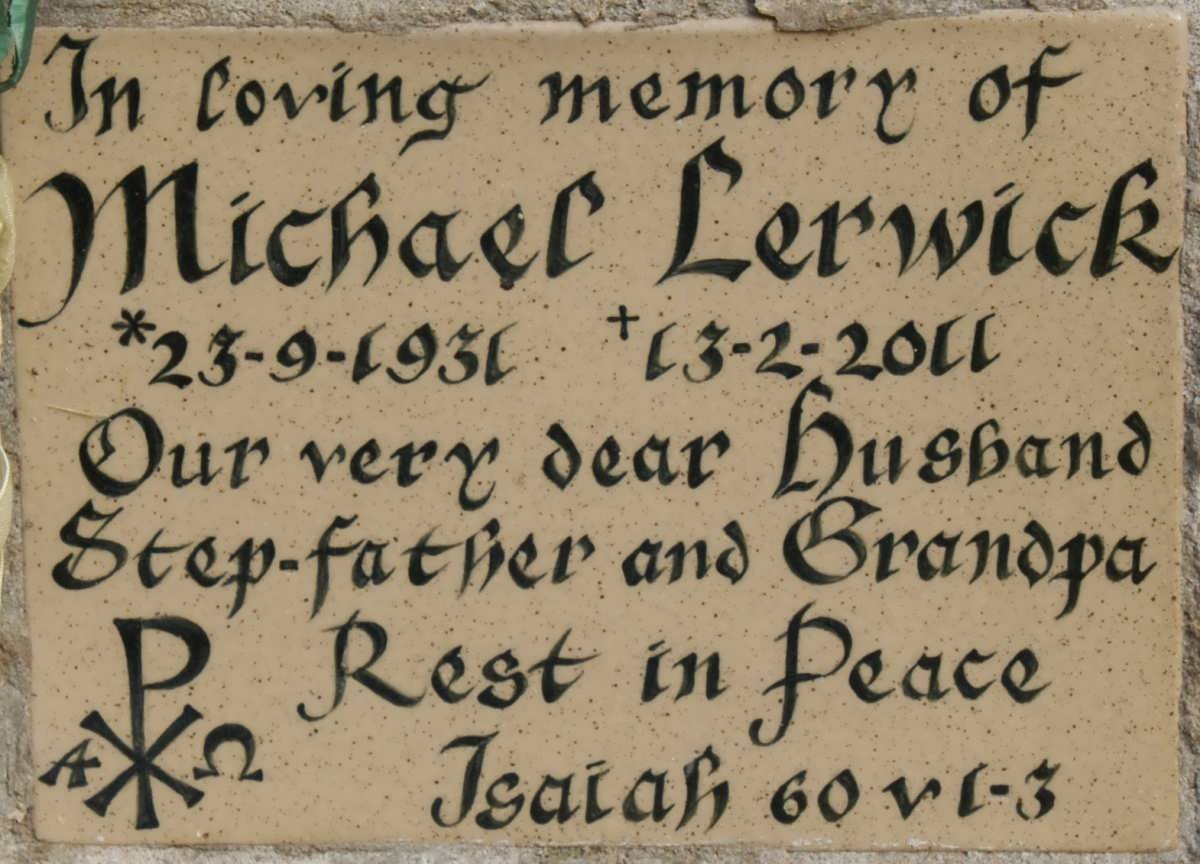 In loving memory of
Michael Lerwick
*23-9-1931 †13-2-2011
Our very dear Husband
Step-father and Grandpa
Rest in Peace
Α ☧ Ω
Isaiah 60 v 1-3